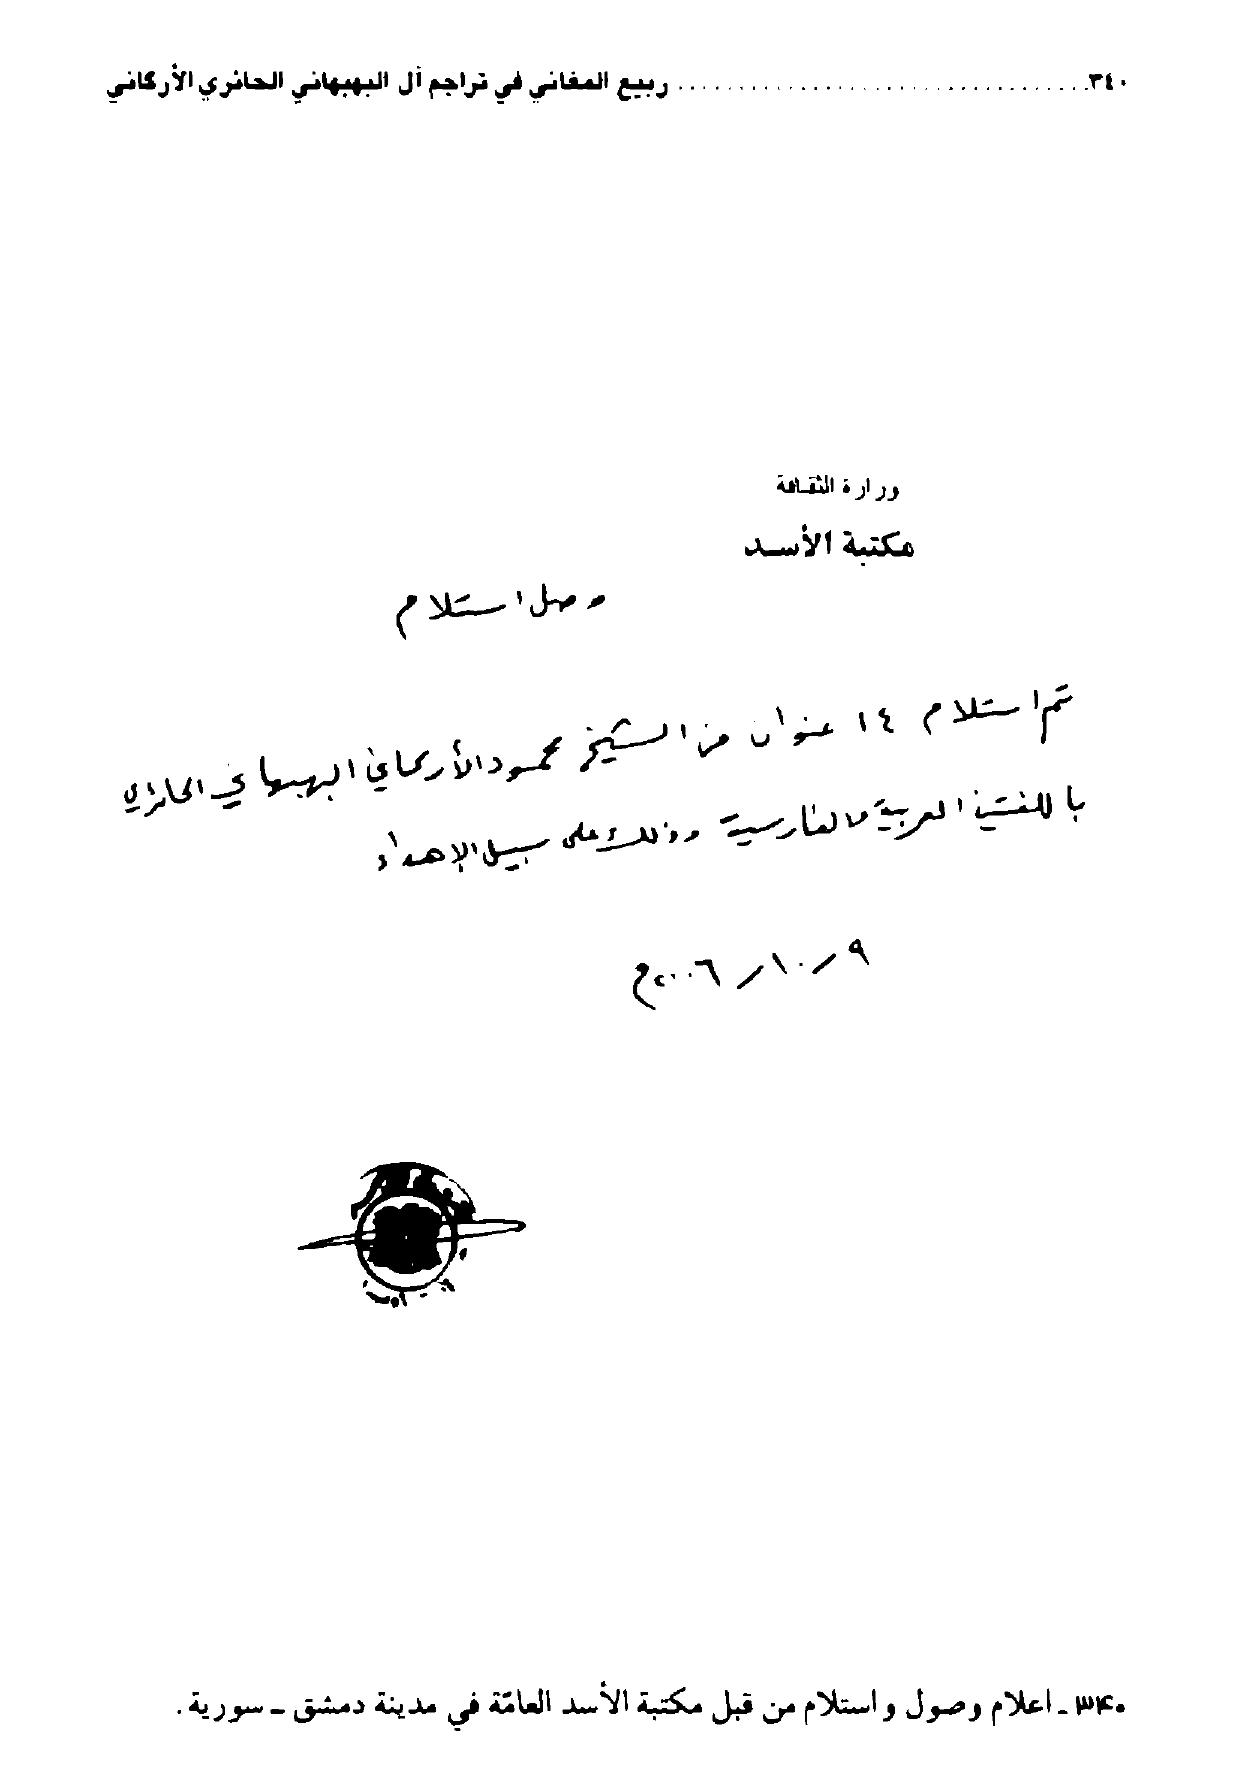 ٣٤٠ ........................................ ربيع المغاني في تراجم آل البهبهاني الحائري الأركاني
وزارة الثقافة
مكتبة الأسد
وصل استلام
تم استلام ١٤ عنوان من الشيخ محمود الأركاني البهبهاني الحائري
باللغتين العربية والفارسية وذلك على سبيل الإهداء
٩ / ١٠ / ٢٠٠٦م
٣٤٠ ـ اعلام وصول واستلام من قبل مكتبة الأسد العامّة في مدينة دمشق ـ سورية.